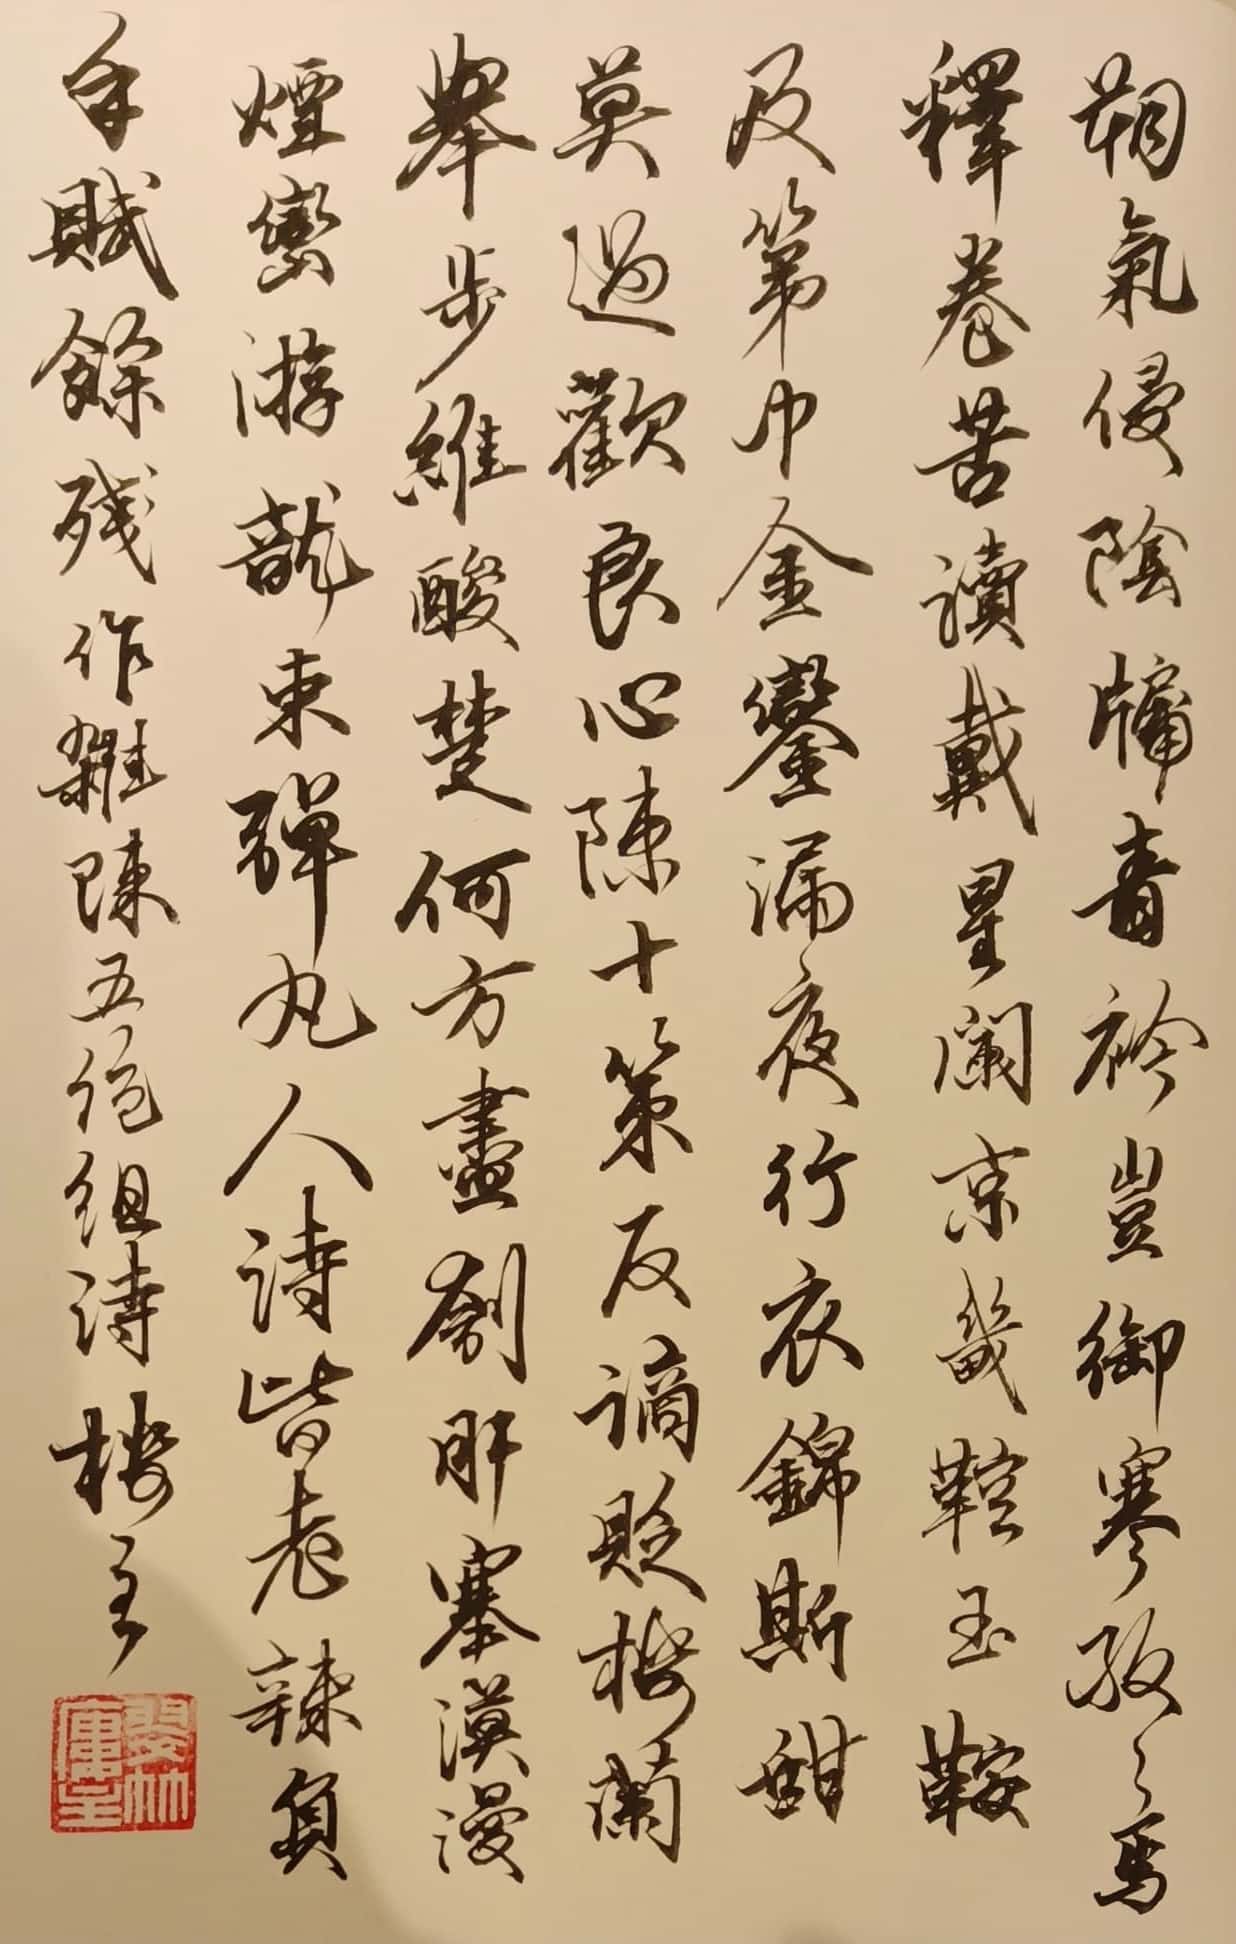 朔氣侵陰牖青衿豈御寒孜々焉
釋卷苦讀戴星闌京畿鞚玉鞍
及第巾金鑾漏夜行衣錦斯甜
莫過歡良心陳十策反謫貶樓蘭
舉步維酸楚何方盡劍肝塞漠漫
煙巒游龍東彈丸人詩皆老辣負
手賦餘殘作雜陳五絕組詩樓主